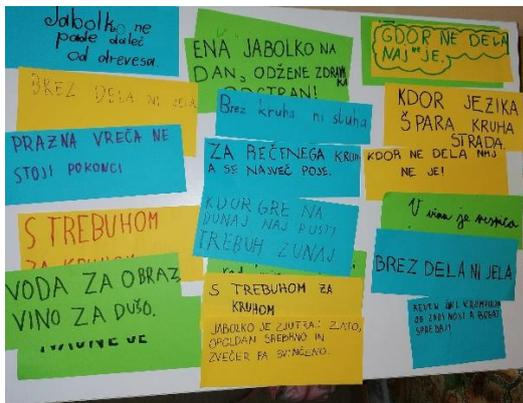 Jabolko ne
pade daleč
od drevesa.
BREZ DELA NI JELA
PRAZNA VREČA NE
STOJI POKONCI
S TREBUHOM
ZA KRUHOM
VODA ZA OBRAZ,
VINO ZA DUŠO.
ENA JABOLKO NA
DAN, ODŽENE ZDRAVNIKA
STRAN!
Brez kruha ni sluha
ZA REČENEGA KRUHA
A SE NAJVEČ POJE.
KDOR GRE NA
DUNAJ NAJ PUSTI
TREBUH ZUNAJ
S TREBUHOM ZA
KRUHOM
JABOLKO JE ZJUTRAJ ZLATO,
OPOLDAN SREBRNO IN
ZVEČER PA SVINČENO.
GDOR NE DELA
NAJ NE JE.
KDOR JEZIKA
ŠPARA KRUHA
STRADA.
KDOR NE DELA NAJ
NE JE!
V vinu je resnica
BREZ DELA NI JELA